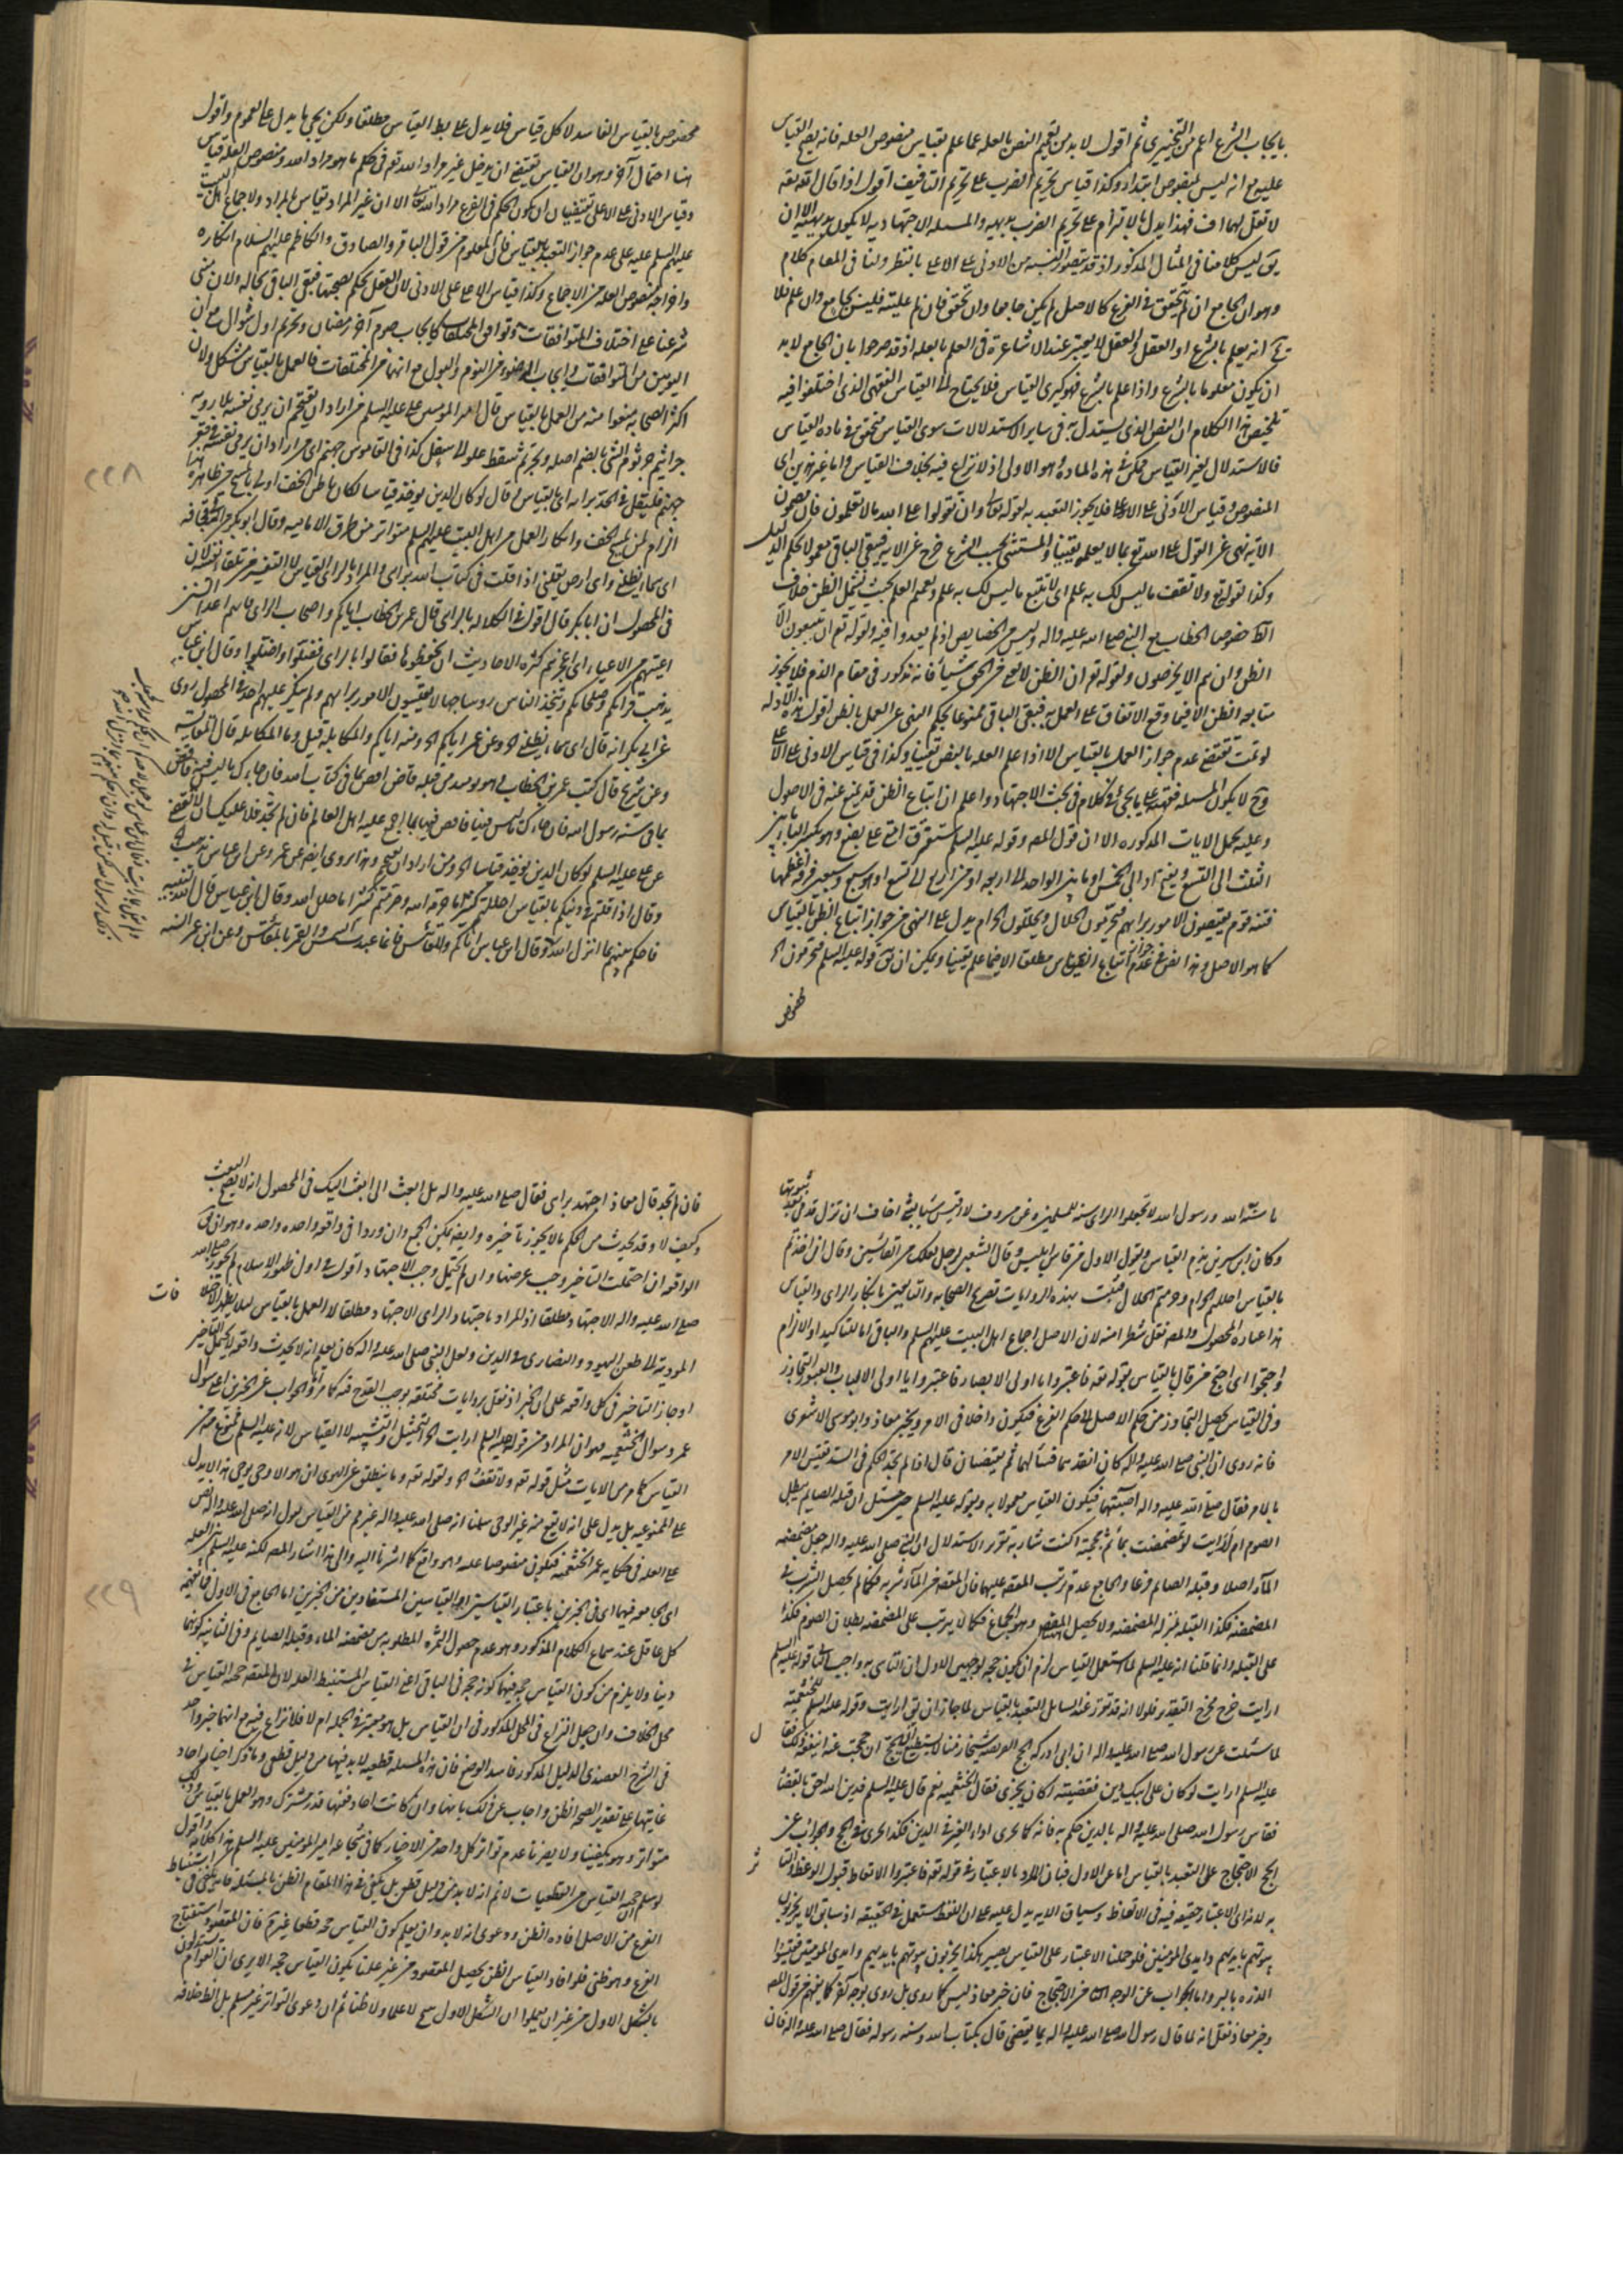 بايجاب الشرع اعم من التخييرى ثم اقول لا بد من تعميم النص بالعله عما علم بقياس منصوص العله فانه يصح القياس
عليه مع انه ليس بمنصوص ابتداء وكذا قياس تحريم الضرب على تحريم التافيف اقول اذا قال الله تعه
لا تقل لهما اف فهذا يدل بالالتزام على تحريم الضرب بديهيه والمسله الاجتهاديه لا يكون بديهيه الا ان
يق ليس كلامنا فى المثال المذكور اذ قد يتصور بالنسبه من الادنى على الاعلى بالنظر ولنا فى المقام كلام
وهو ان الجامع ان لم يتحقق فى الفرع كالاصل لم يكن جامعا وان تحقق فان لم علية فليس بجامع وان علم فلا
انه يعلم بالشرع او العقل والعقل لا يعتبر عند الاشاعرة فى العلم بالعله اذ قد صرحوا بان الجامع لا بد
ان يكون معلوما بالشرع واذا علم بالشرع فهو كبرى القياس فلا يحتاج الى القياس الفقهى الذى اختلفوا فيه
تلخيص هذا الكلام ان النص الذى يستدل به فى ساير الاستدلالات سوى القياس متحقق فى ماده القياس
فالاستدلال بغير القياس ممكن فى هذه الماده وهو الاولى اذ لا نزاع فيه بخلاف القياس واما غير هذين اى
المنصوص وقياس الادنى على الاعلى فلا يجوز التعبد به لقوله تعا وان تقولوا على الله ما لا تعلمون فان مضمون
الايه نهى عن القول على الله تع بما لا يعلمه يقينا والمستثنى بحسب الشرع خرج عن الايه فيبقى الباقى معمولا بحكم الدليل
وكذا لقوله تع ولا تقف ما ليس لك به علم اى لا تتبع ما ليس لك به علم وتعميم العلم بحيث يشمل الظن خلاف
الظ خصوصا الخطاب مع النبى صلى الله عليه واله وليس من الخصايص اذ لم يعدوا فيه ولقوله تع ان يتبعون الا
الظن وان هم الا يخرصون ولقوله تع ان الظن لا يغنى من الحق شيئا فانه مذكور فى مقام الذم فلا يجوز
متابعه الظن الا فيما وقع الاتفاق على العمل به فبقى الباقى ممنوعا بحكم النهى عن العمل بالظن اقول هذه الادله
لو تمت تقتضى عدم جواز العمل بالقياس الا اذا علم العله بالنص يقينا وكذا فى قياس الادنى على الاعلى
وح لا يكون المسله فقهيه على ما يجئ فى كلام فى بحث الاجتهاد واعلم ان اتباع الظن قد يمنع عنه فى الاصول
وعليه يحمل الايات المذكوره الا ان قول المص وقوله عليه السلم ستفترق امتى على بضع وهو بكسر الباء ما بين
الثلث الى التسع وبفتح او الى الخمس او ما بين الواحد الى اربعه او من اربع الى تسع او هو سبع وسبعين فرقه اعظمها
فتنه قوم يقيسون الامور برايهم فيحرمون الحلال ويحللون الحرام يدل على النهى عن جواز اتباع الظن بالقياس
كما هو الاصل وهذا نص فى عدم جواز اتباع القياس مطلقا الا فيما علم يقينا ويمكن ان يق قوله عليه السلم فيحرمون الخ
مخصوص بالقياس الفاسد لا كل قياس فلا يدل على بطلان القياس مطلقا ولكن يجئ ما يدل على العموم واقول
هنا احتمال آخر وهو ان القياس يقتضى ان يدخل غير مراد الله تع فى حكم ما هو مراد الله ومنصوص العله قياس
وقياس الادنى على الاعلى يقتضيان ان يكون الحكم فى الفرع مراد الله تعا الا ان غير المراد يقاس بالمراد ولاجماع اهل البيت
عليهم السلم عليه على عدم جواز التعبد بالقياس فان المعلوم من قول الباقر والصادق والكاظم عليهم السلام انكاره
واخراجه منصوص العله من الاجماع وكذا قياس الاعلى على الادنى لان العقل يحكم بصحتها فبقى الباقى بحاله ولان مبنى
شرعنا على اختلاف المتوافقات وتوافق المختلفات كايجاب صوم آخر رمضان وتحريم اول شوال مع ان
اليومين من المتوافقات وايجاب الوضوء من النوم والبول مع انهما من المختلفات فالعمل بالقياس مشكل ولان
اكثر الصحابه منعوا منه من العمل بالقياس قال امير المؤمنين على عليه السلم من اراد ان يقتحم ان يرمى نفسه بلا رويه
جراثيم جرثومه الشئ بالضم اصله وتجرثم سقط من علو الى سفل كذا فى القاموس جهنم اى من اراد ان يرمى نفسه فى قعر
جهنم فليقل فى الجد برايه اى بالقياس وقال لو كان الدين يوخذ قياسا لكان باطن الخف اولى بالمسح من ظاهره
الزام لمن يمسح الخف وانكار العمل من اهل البيت عليهم السلم متواتر من طرق الاماميه وقال ابو بكر
اى سماء تظلنى واى ارض تقلنى اذا قلت فى كتاب الله برايى والمراد بالراى القياس لا التفسير
فى المحصول ان ابا بكر قال اقول فى الكلاله بالراى قال عمر بن الخطاب اياكم واصحاب الراى فانهم اعداء السنن
اعيتهم من الاعياء اى اعجزتهم كثره الاحاديث ان يحفظوها فقالوا بالراى فضلوا واضلوا وقال ابن عباس
يذهب قراؤكم وصلحاؤكم ويتخذ الناس روسا جهالا يقيسون الامور برايهم ولم ينكر عليهم احد والمحصول روى
عن ابى بكر انه قال اى سماء تظلنى الخ وعن عمر اياكم الخ ومنه اياكم والمكايله قيل وما المكايله قال المقايسه
وعن شريح قال كتب عمر بن الخطاب الى وهو يومئذ من قبله قاض اقض بما فى كتاب الله فان جاءك ما ليس فيه فاقض
بما فى سنه رسول الله فان جاءك ما ليس فيها فاقض فيها بما اجمع عليه اهل العلم فان لم تجد فلا عليك ان لا تقضى
عن على عليه السلم لو كان الدين يوخذ قياسا الخ ومن اراد ان يقتحم الخ وهذا يروى ايضا عن عمر وعن ابن عباس يذهب الخ
وقال اذا قلتم فى دينكم بالقياس احللتم كثيرا مما حرمه الله وحرمتم كثيرا مما حلل الله وقال ابن عباس قال الله لنبيه
فاحكم بينهم بما انزل الله وقال ابن عباس اياكم والمقائيس فانما عبدت الشمس والقمر بالمقائيس وعن ابن عمر السنه
٢٢٨
ما سنه الله ورسول الله لا تجعلوا الراى سنه للمسلمين وعن مسروق لا اقيس شيئا بشئ اخاف ان تزل قدمى بعد ثبوتها
وكان ابن سيرين يذم القياس ويقول الاول من قاس ابليس وقال الشعبى لرجل لعلك من القائسين وقال ان اخذتم
بالقياس احللتم الحرام وحرمتم الحلال فثبت بهذه الروايات تصريح الصحابه والتابعين بانكار الراى والقياس
هذا عباره المحصول والمص نقل شطرا منه لان الاصل اجماع اهل البيت عليهم السلم والباقى اما للتاكيد او الالزام
واحتجوا اى احتج من قال بالقياس بقوله تعه فاعتبروا يا اولى الابصار فاعتبروا يا اولى الالباب والعبور التجاوز
وفى القياس يحصل التجاوز من حكم الاصل الى حكم الفرع فيكون داخلا فى الامر وبخبر معاذ وابو موسى الاشعرى
فانه روى ان النبى صلى الله عليه واله كان انفذهما فسالهما ثم يقضيان قال اذا لم نجد الحكم فى السنه نقيس الامر
بالامر فقال صلى الله عليه واله اصبتما فيكون القياس معمولا به وبقوله عليه السلم حين سئل ان قبله الصايم يبطل
الصوم ام لا ارايت لو تمضمضت بماء ثم مججته اكنت شاربه تقرير الاستدلال ان النبى صلى الله عليه واله جعل مضمضه
الماء اصلا وقبله الصايم فرعا والجامع عدم ترتب المقصود عليهما فان المقصود من الماء شربه فكما لم يحصل الشرب فى
المضمضه فكذا القبله بمنزله المضمضه ولا يحصل المقصود وهو الجماع فكما لا يترتب على المضمضه بطلان الصوم فكذا
على القبله وانما قلنا انه عليه السلم لما استعمل القياس لزم ان يكون حجه لوجهين الاول ان التاسى به واجب الثانى قوله عليه السلم
ارايت خرج مخرج التقرير فلولا انه قد تقرر عند السايل التعبد بالقياس لما جاز ان يق ارايت وقوله عليه السلم للخثعميه
لما سئلت عن رسول الله صلى الله عليه واله ان ابى ادركه الحج الفريضه شيخا زمنا لا يستطيع الحج ان حججت عنه اينفعه ذلك فقال
عليه السلم ارايت لو كان على ابيك دين فقضيته اكان يجزى فقال الخثعميه نعم قال عليه السلم فدين الله احق بالقضا
فقاس رسول الله صلى الله عليه واله بالدين حكم به فانه كما يجرى اداء الغير فى الدين فكذا يجرى فى الحج والجواب عن
الحج الاحتجاج على التعبد بالقياس اما عن الاول فبان المراد بالاعتبار فى قوله تعه فاعتبروا الاتعاظ قبول الوعظ والتاثر
به لانه اى الاعتبار حقيقه فيه فى الاتعاظ وسياق الايه يدل عليه على ان اللفظ مستعمل فى الحقيقه اذ سابق الايه يخربون
بيوتهم بايديهم وايدى المؤمنين فلو حملنا الاعتبار على القياس يصير هكذا يخربون بيوتهم بايديهم وايدى المؤمنين فقيسوا
الذره بالبر واما الجواب عن الوجه الثانى من الاحتجاج فان خبر معاذ ليس كما روى بل روى بوجه آخر كما يفهم من قول المص
وخبر معاذ نقل انه لما قال رسول الله صلى الله عليه واله بما تقضى قال بكتاب الله وسنه رسوله فقال صلى الله عليه واله فان
فان لم تجد قال معاذ اجتهد برايى فقال صلى الله عليه واله بل ابعث الى ابعث اليك فى المحصول انه لا يصح البعث
وكيف لا وقد يحدث من الحكم ما لا يجوز تاخيره وايضا يمكن الجمع وان وردا فى واقعه واحده وهو ان يق
الواقعه ان احتملت التاخير وجب عرضها وان لم يحتمل وجب الاجتهاد اقول فى اول ظهور الاسلام لم يجوز صلى الله
صلى الله عليه واله الاجتهاد مطلقا اذ المراد باجتهاد الراى الاجتهاد مطلقا لا العمل بالقياس لئلا يظهر الاختلافات
المودية الى طعن اليهود والنصارى فى الدين ولعل النبى صلى الله عليه واله كان يعلم انه لا يحدث واقعه لا يحتمل التاخير
او جاز التاخير فى كل واقعه على ان الخبر اذ نقل بروايات مختلفه يوجب القدح فيه كما مر واما الجواب عن الخبرين اى سوال
عمر وسوال الخثعميه فهو ان المراد من قوله عليه السلم ارايت الخ التمثيل والتشبيه لا القياس لانه عليه السلم ممنوع من
القياس كما مر من الايات مثل قوله تعه ولا تقف الخ ولقوله تعه وما ينطق عن الهوى ان هو الا وحى يوحى هذا لا يدل
على الممنوعيه بل يدل على انه لا يقع منه غير الوحى سلمنا انه صلى الله عليه واله غير ممنوع من القياس نقول انه صلى الله عليه واله نص
على العله فى حكايه عمر والخثعميه فيكون منصوصا عليه وهو واقع كما اشرنا اليه والى هذا اشار المص لكنه عليه السلم بين العله
اى الجامعه فيهما اى فى الخبرين باعتبار القياسين او القياسين المستفادين من الخبرين اما الجامع فى الاول فما يفهمه
كل عاقل عند سماع الكلام المذكور وهو عدم حصول الثمره المطلوبه من مضمضه الماء وقبله الصايم وفى الثانيه كونهما
دينا ولا يلزم من كون القياس حجه فيهما كونه حجه فى الباقى اعنى القياس المستنبط العله لان المقصود حجيه القياس فى
محل الخلاف وان جعل النزاع فى المحل المذكور فى ان القياس بل هو معتبر فى الجمله ام لا فلا نزاع فيه مع انهما خبر واحد
فى الشرح العضدى الدليل المذكور فاسد الوضع فان هذه المسله قطعيه لا بد فيها من دليل قطعى وما ذكر اخبار احاد
غايتها على تقدير الصحه الظن واجاب عن ذلك بانها وان كانت احاد فبينها قدر مشترك وهو العمل بالقياس وذلك
متواتر وهو يكفينا ولا يضرنا عدم تواتر كل واحد من الاخبار كما فى شجاعه امير المؤمنين عليه السلم هذا كلامه واقول
لو سلم ان حجيه القياس من القطعيات لا نم انه لا بد من دليل قطعى بل يكفى فى هذا المقام الظن بالمسئله فان يكفى فى استنباط
الفرع من الاصل افاده الظن ودعوى انه لا بد وان يعلم كون القياس حجه قطعا غير تم فان المقصود استنتاج
الفرع وهو ظنى فلو افاد القياس الظن يحصل المقصود من غير علمنا بكون القياس حجه الا يرى ان العوام يستدلون
بالشكل الاول من غير ان يعلموا ان الشكل الاول منتج لا علما ولا ظنا ثم ان دعوى التواتر غير مسلم بل الظ خلافه
٢٢٩